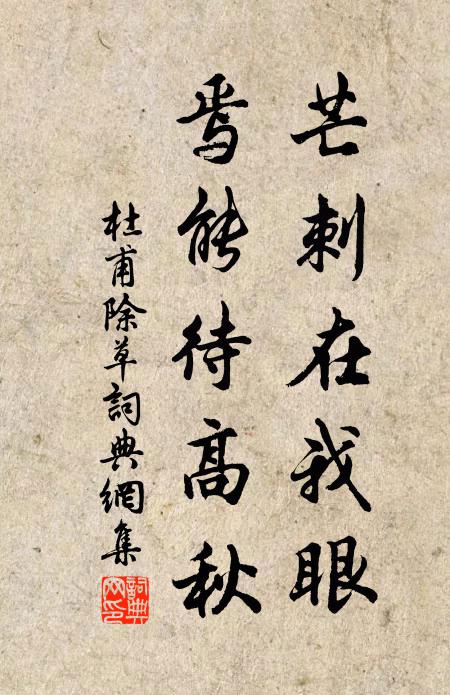 芒刺在我眼
焉能待高秋
杜甫除草詞典網集
詞典網印